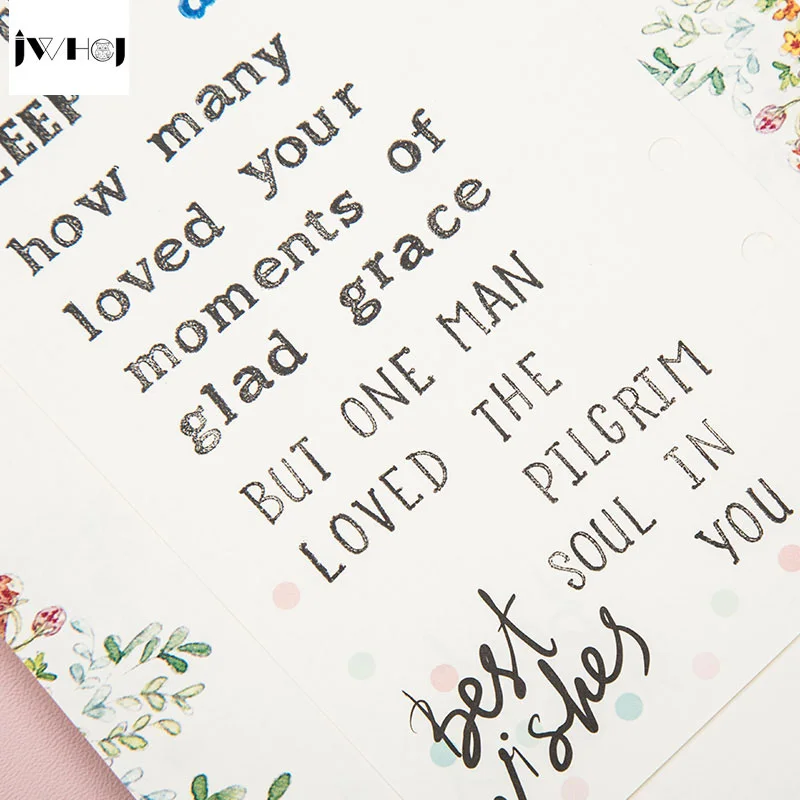 JWHOJ
how many
loved your
moments of
glad grace
BUT ONE MAN
LOVED THE
PILGRIM
SOUL IN
YOU
Best
wishes